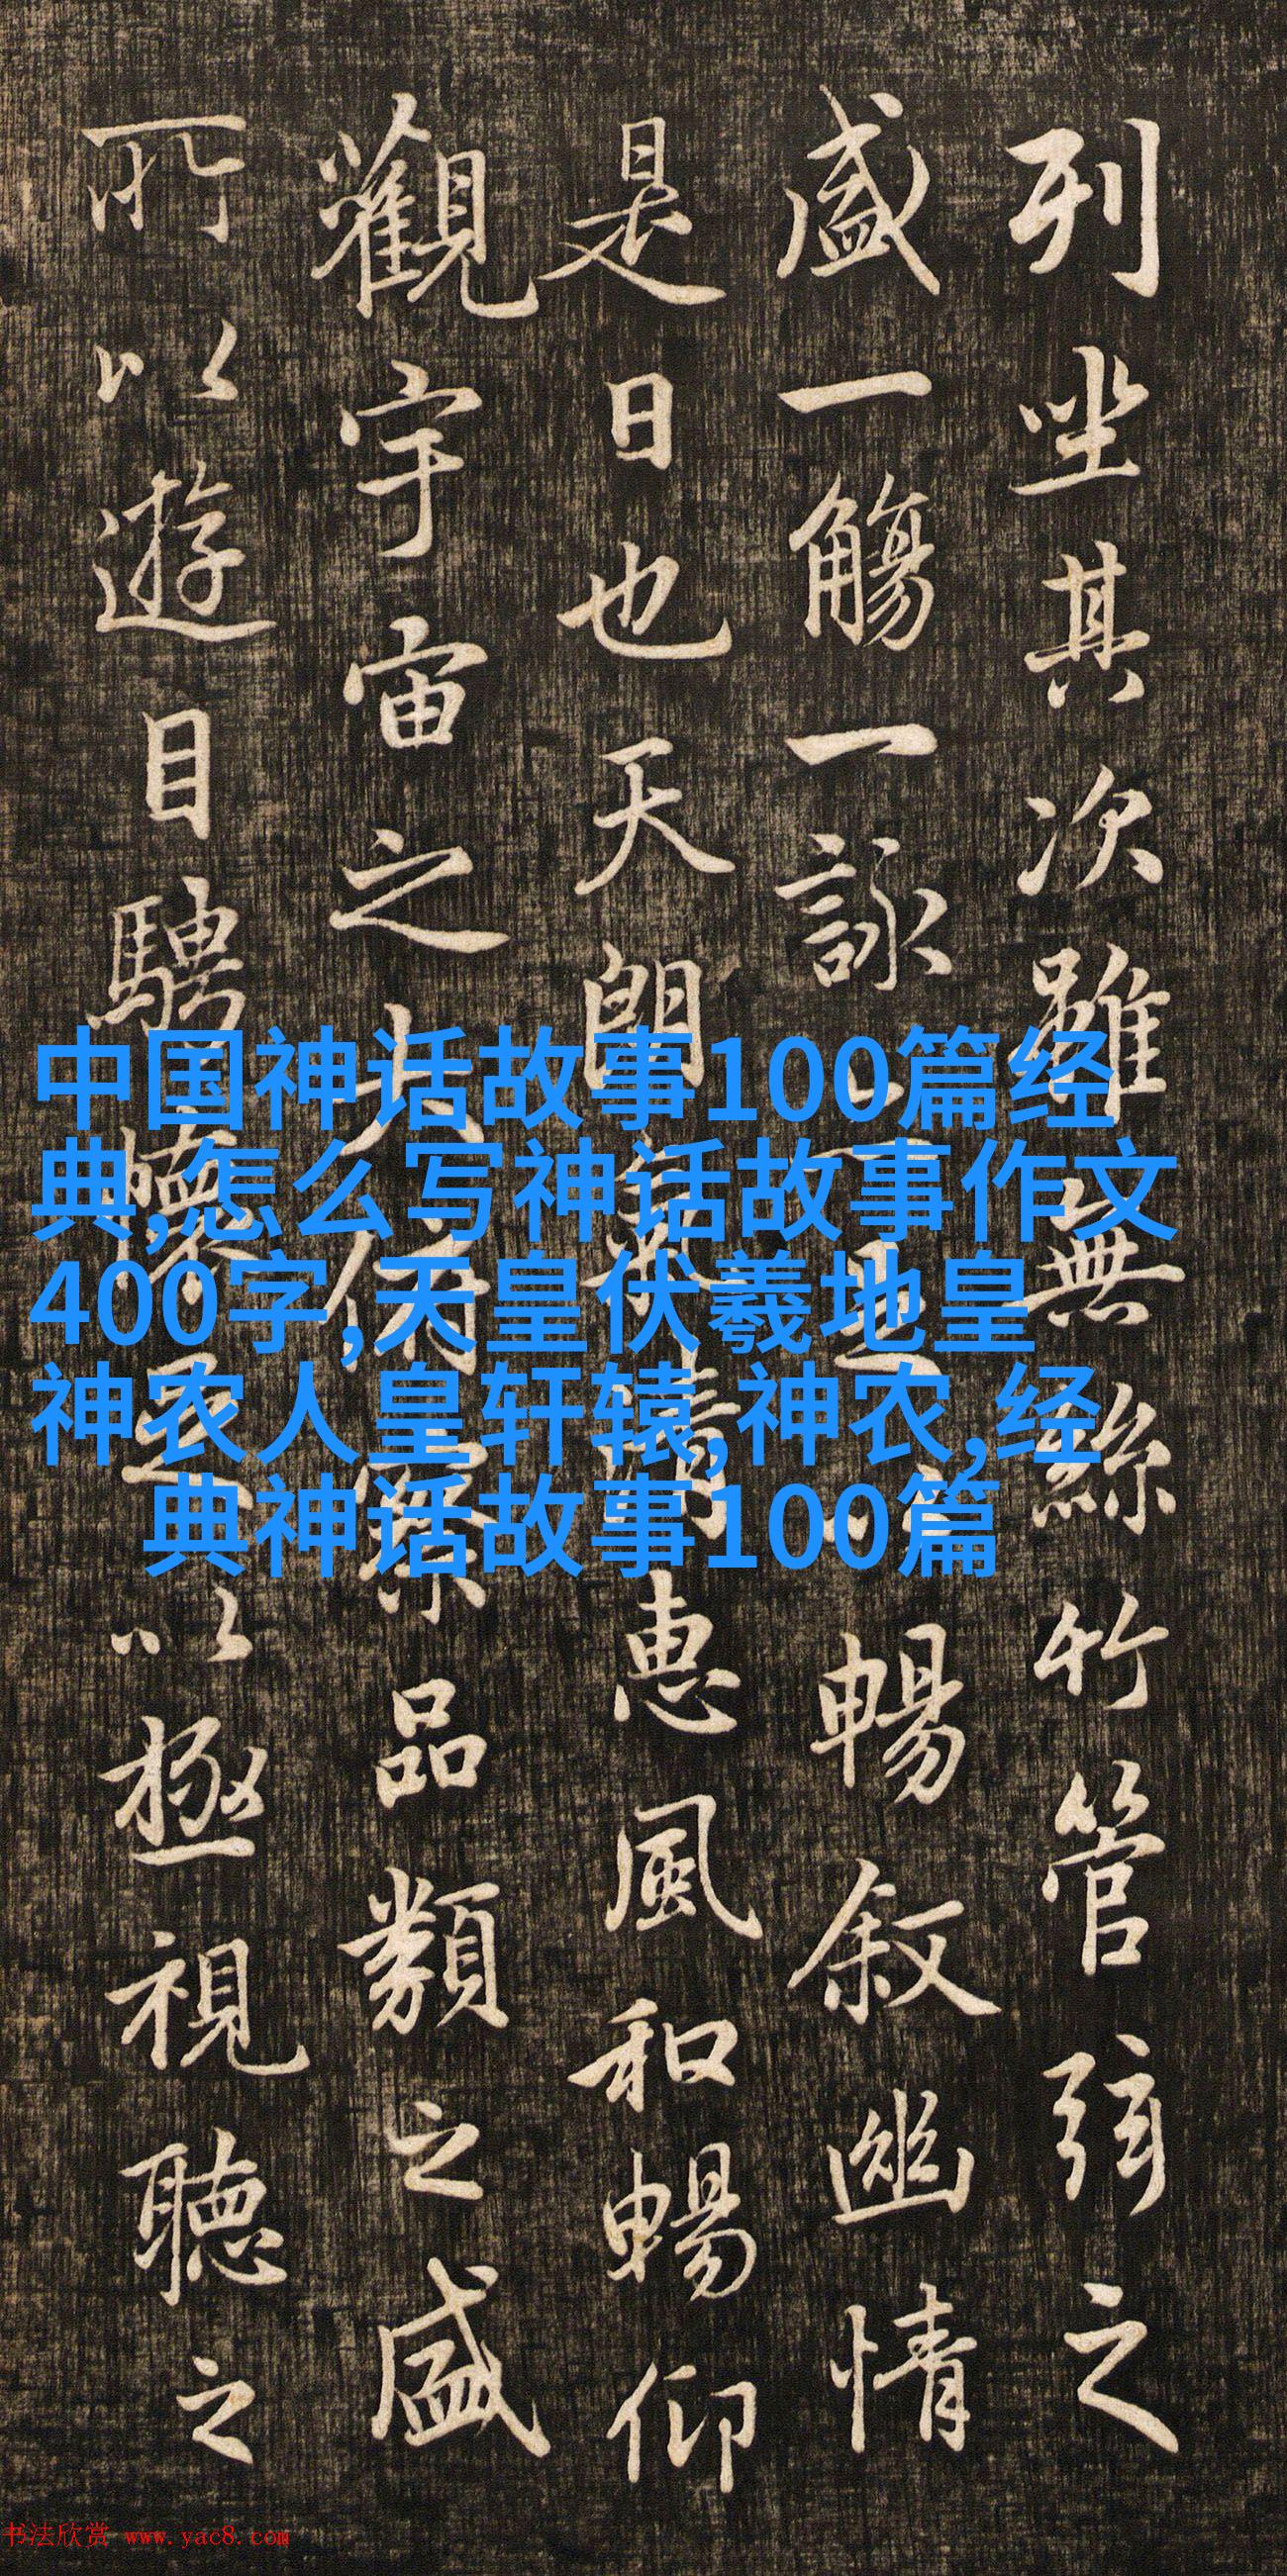 列坐其次雖無絲竹管弦之
盛一觴一詠亦足以暢叙幽情
是日也天朗氣清惠風和暢仰
觀宇宙之大俯察品類之盛
所以遊目騁懷足以極視聽之
中国神话故事100篇经
典,怎么写神话故事作文
400字,天皇伏羲地皇
神农人皇轩辕,神农,经
典神话故事100篇
书法欣赏 www.yac8.com